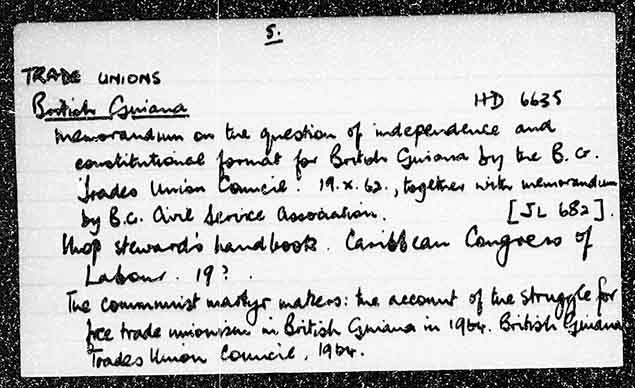 5.
TRADE UNIONS
British Guiana HD 6635
Memorandum on the question of independence and
constitutional format for British Guiana by the B.G.
Trades Union Council. 19.x.62., together with memorandum
by B.G. Civil Service Association. [JL 682].
Shop steward's handbook. Caribbean Congress of
Labour. 19?.
The communist martyr makers: the account of the struggle for
free trade unionism in British Guiana in 1964. British Guiana
Trades Union Council, 1964.